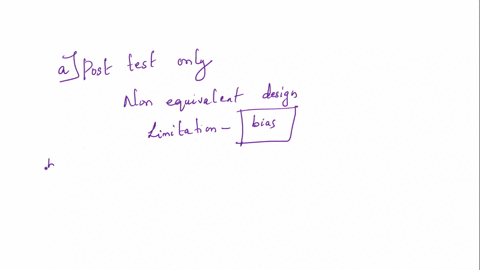 a] Post test only
Non equivalent design
Limitation - bias